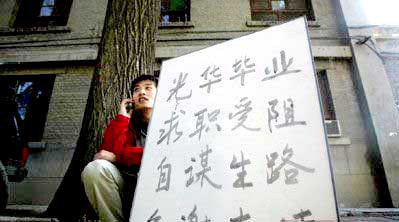 光华毕业
求职受阻
自谋生路